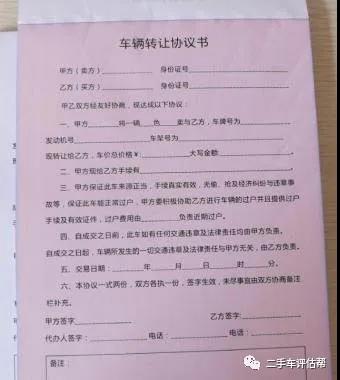 车辆转让协议书
甲方（卖方）__________ 身份证号__________
乙方（买方）__________ 身份证号__________
甲乙双方经友好协商，现达成以下协议：
一、甲方______将一辆____色____卖与乙方，车牌号为__________
发动机号__________车架号为__________
现转让给乙方，车价总价格￥:__________大写金额__________。
二、甲方现给乙方手续有____________________。
三、甲方保证此车来源正当，手续真实有效，无偷、抢及经济纠纷与违章事
故等，保证此车能正常过户，甲方委积极协助乙方进行车辆的过户并且提供过户
手续及有效证件，过户费用由________负责近期过户。
四、自成交之日前，此车如有任何交通违章及法律责任均由甲方负责。
自成交之日起，车辆所发生的一切交通违章及法律责任与甲方无关，由乙方负责。
五、交易日期：______年____月____日____时____分。
六、本协议一式两份，双方各执一份，签字生效，未尽事宜由双方协商备注
栏补充。
甲方签字:__________ 乙方签字:__________
代办人签字：__________ 电话：__________ 电话：__________
备注：
二手车评估帮